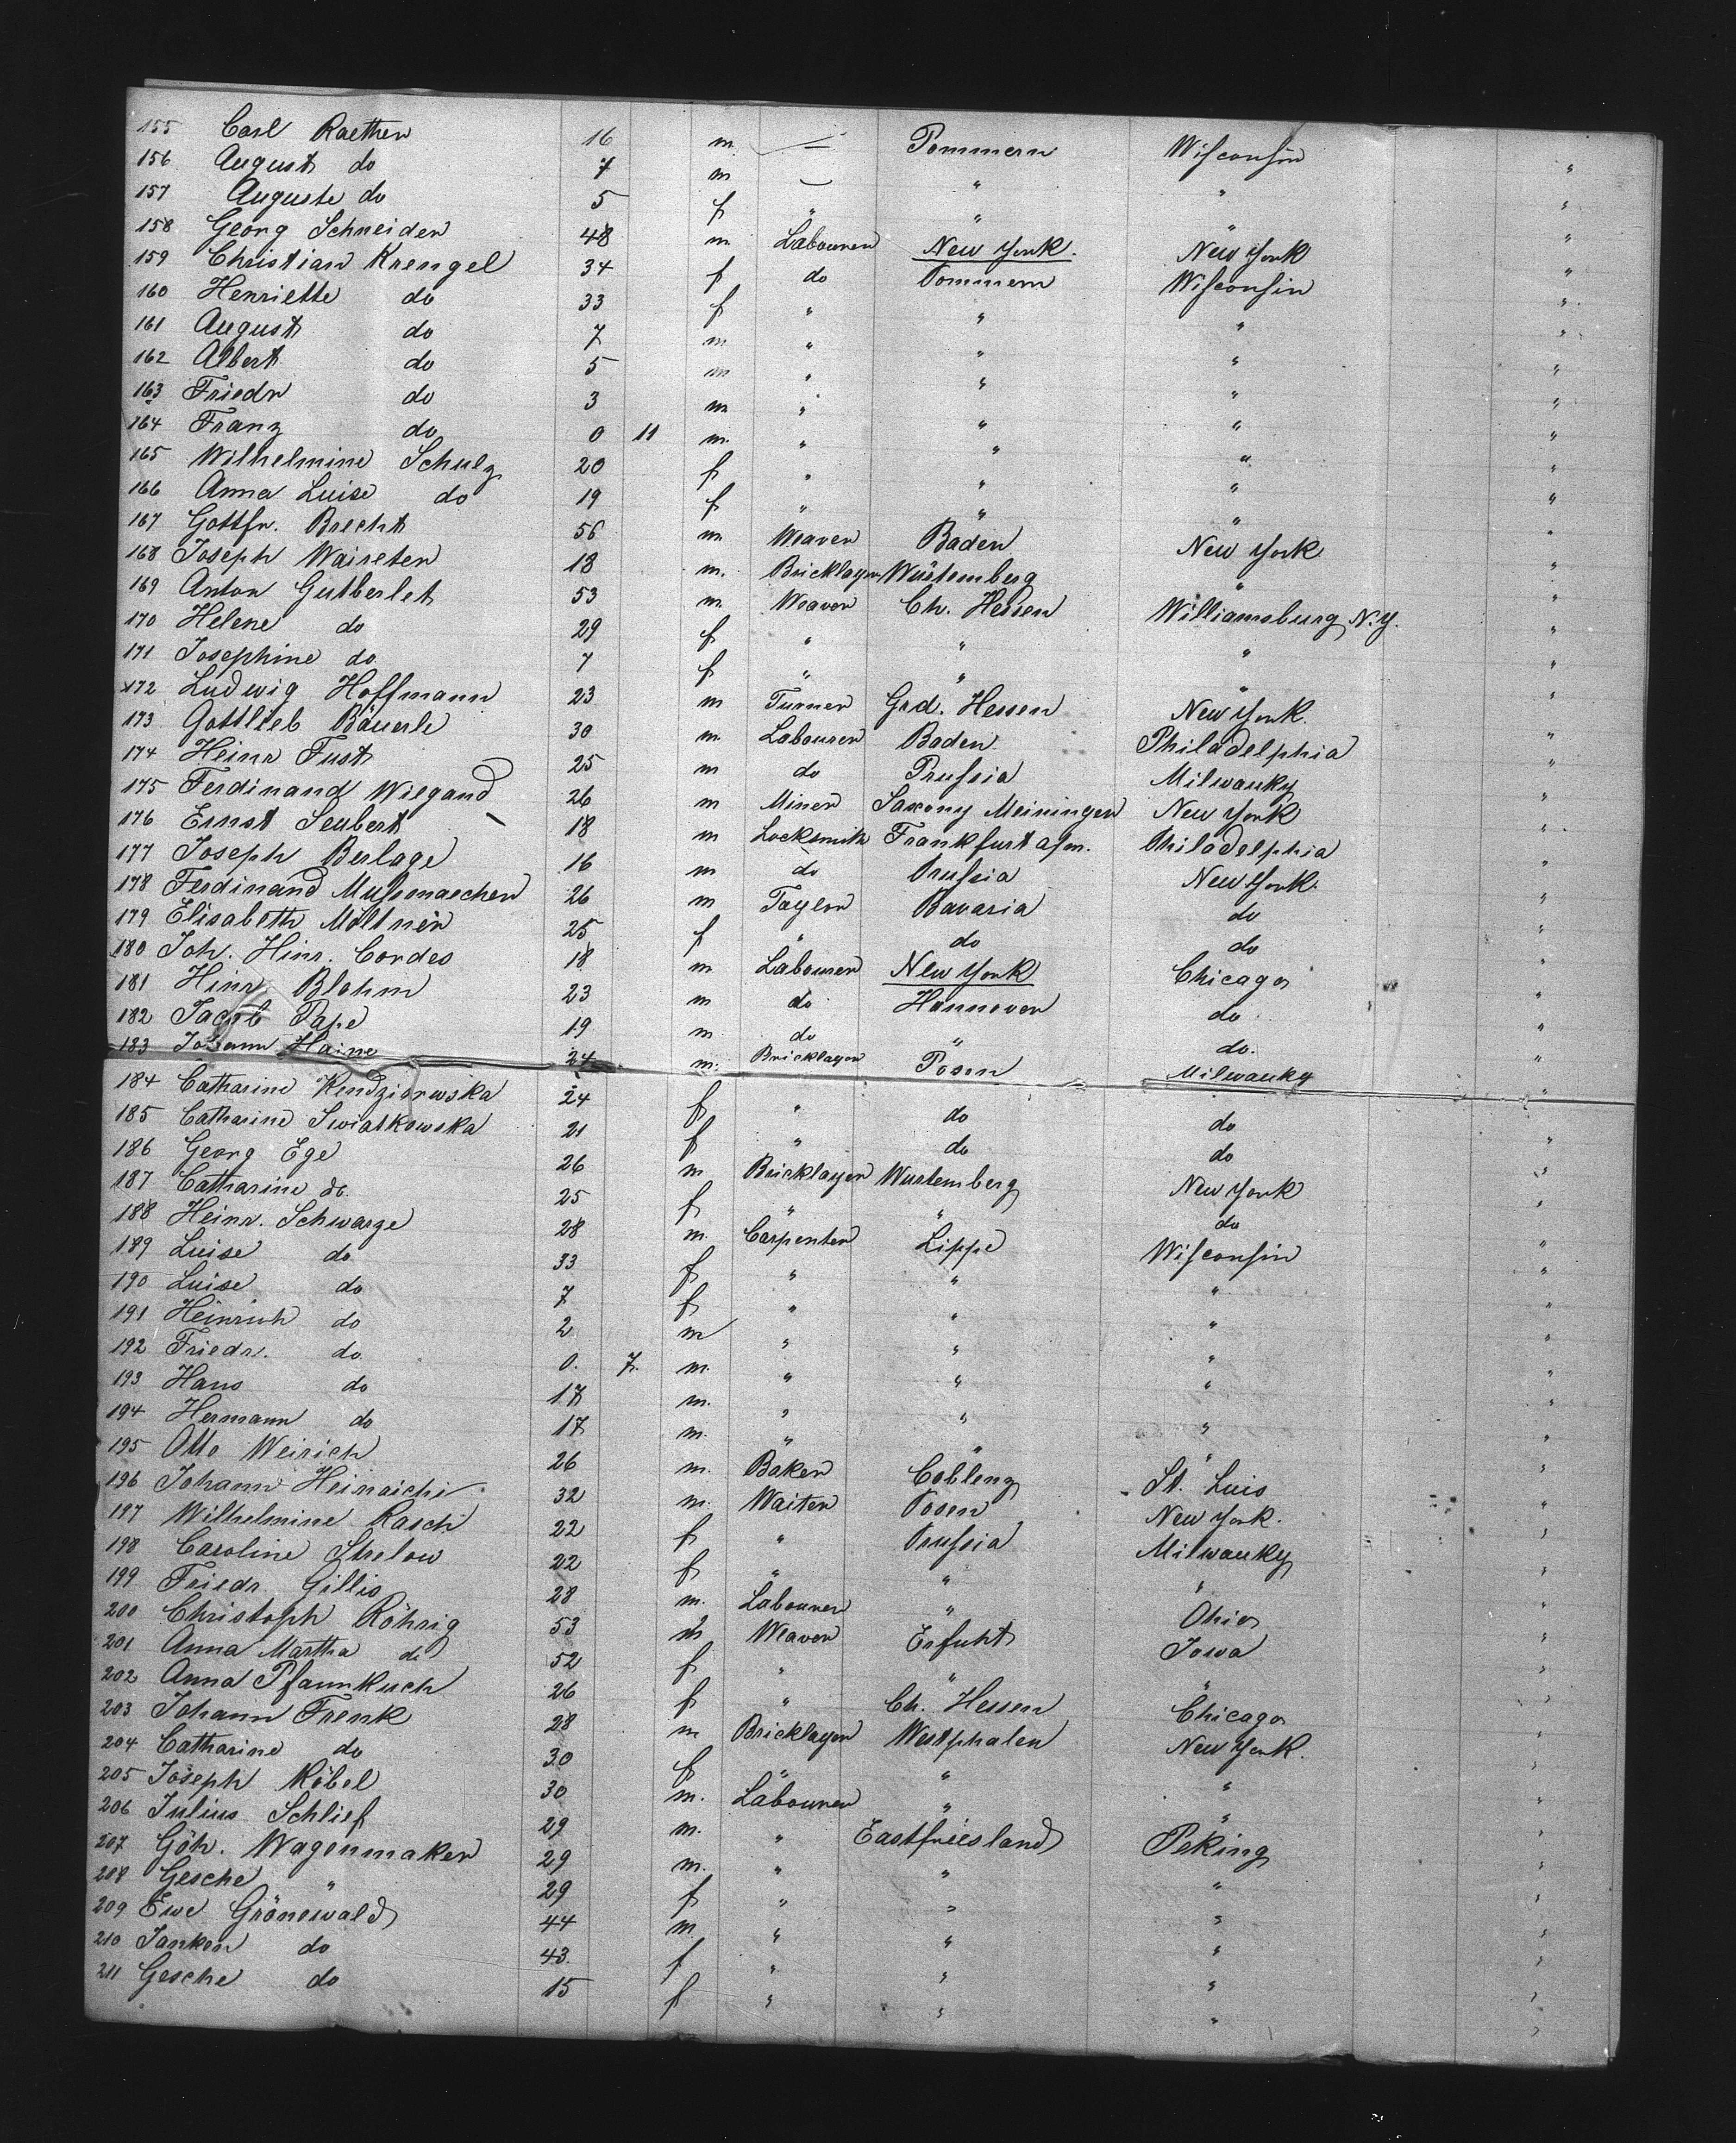 155 Carl Raether 16 m — Pommern Wisconsin
156 August do 7 m — " " "
157 Auguste do 5 f " " " "
158 Georg Schneider 48 m Labourer New York. New York "
159 Christian Krengel 34 f do Pommern Wisconsin "
160 Henriette do 33 f " " " "
161 August do 7 m " " " "
162 Albert do 5 m " " " "
163 Friedr do 3 m " " " "
164 Franz do 0 11 m. " " " "
165 Wilhelmine Schulz 20 f " " " "
166 Anna Luise do 19 f " " " "
167 Gottfr. Brecht 56 m Weaver Baden New York "
168 Joseph Waireter 18 m. Bricklayer Würtemberg " "
169 Anton Gutberlet 53 m Weaver Ch. Hessen Williamsburg N.Y. "
170 Helene do 29 f " " " "
171 Josephine do 7 f " " " "
172 Ludwig Hoffmann 23 m Turner Grd. Hessen New York. "
173 Gottlieb Bäuerle 30 m. Labourer Baden Philadelphia "
174 Heinr Fust 25 m do Prussia Milwauky "
175 Ferdinand Wiegand 26 m Miner Saxony Meiningen New York "
176 Ernst Seubert 18 m Locksmith Frankfurt a/m. Philadelphia "
177 Joseph Berlage 16 m do Prussia New York. "
178 Ferdinand Mussmaecher 26 m Taylor Bavaria do "
179 Elisabeth Möltner 25 f " do do "
180 Joh. Hinr. Cordes 18 m Labourer New York Chicago "
181 Hinr Blohm 23 m do Hannover do "
182 Jacob Pape 19 m do " do. "
183 Johann Haine 24 m. Bricklayer Posen Milwauky "
184 Catharine Kendziorewska 24 f " do do "
185 Catharine Swiatkowska 21 f " do do "
186 Georg Ege 26 m Bricklayer Wurtemberg New York "
187 Catharine do. 25 f " " do "
188 Heinr. Schwarze 28 m. Carpenter Lippe Wisconsin "
189 Luise do 33 f " " " "
190 Luise do 7 f " " " "
191 Heinrich do 2 m " " " "
192 Friedr. do 0. 7. m. " " " "
193 Hans do 17 m. " " " "
194 Hermann do 17 m. " " " "
195 Otto Weirich 26 m. Baker Coblenz St. Luis "
196 Johann Heinaichi 32 m. Waiter Posen New York. "
197 Wilhelmine Rasch 22 f " Prussia Milwauky "
198 Caroline Strelow 22 f " " " "
199 Friedr. Gillis 28 m. Labourer " Ohio "
200 Christoph Röhrig 53 m Weaver Erfuht Iowa "
201 Anna Martha do 52 f " " " "
202 Anna Pfannkuch 26 f " Ch. Hessen Chicago "
203 Johann Frenk 28 m Bricklayer Westphalen New York. "
204 Catharine do 30 f " " " "
205 Joseph Köbel 30 m. Labourer " " "
206 Julius Schlief 29 m. " Eastfriesland Peking "
207 Göh. Wagenmaker 29 m. " " " "
208 Gesche " 29 f " " " "
209 Ewe Grönewald 44 m " " " "
210 Janken do 43. f " " " "
211 Gesche do 15 f " " " "